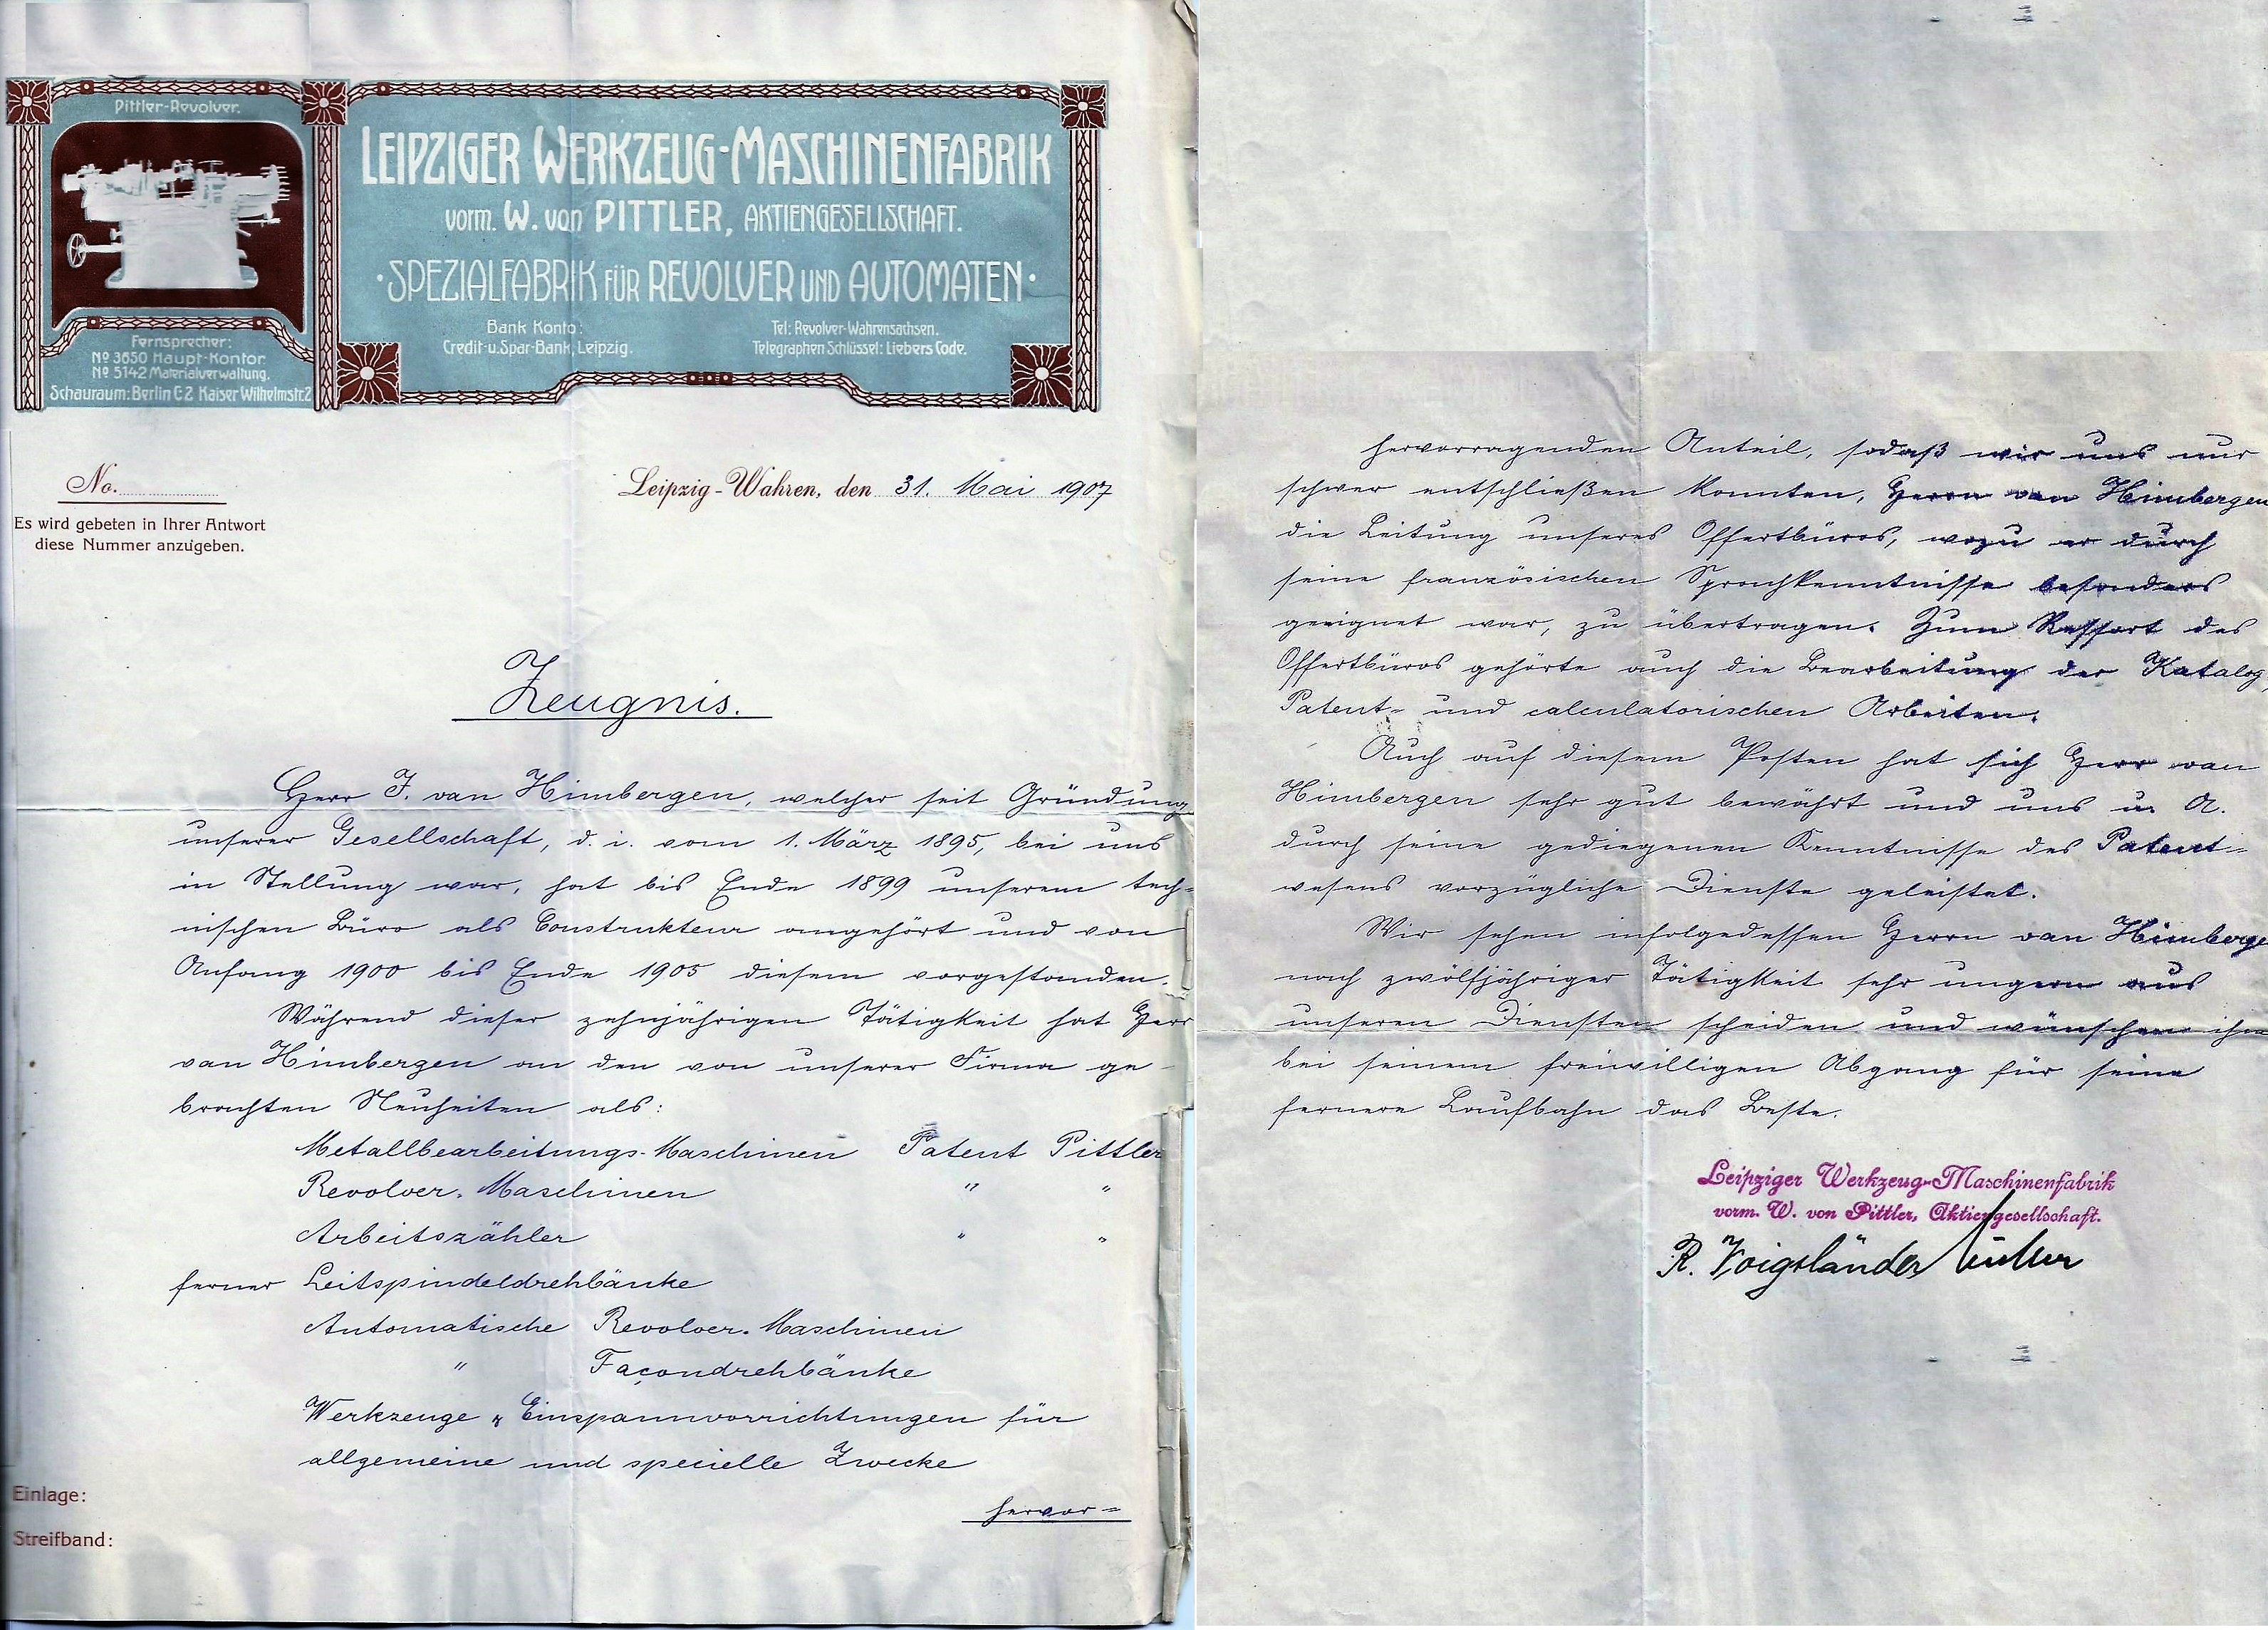 Pittler-Revolver.
LEIPZIGER WERKZEUG-MASCHINENFABRIK
vorm. W. von PITTLER, AKTIENGESELLSCHAFT.
·SPEZIALFABRIK FÜR REVOLVER UND AUTOMATEN·
Bank Konto:
Credit-u.Spar-Bank, Leipzig.
Tel: Revolver-Wahrensachsen.
Telegraphen Schlüssel: Liebers Code.
Fernsprecher:
No 3650 Haupt-Kontor.
No 5142 Materialverwaltung.
Schauraum: Berlin C.2 Kaiser Wilhelmstr.2
No.
Es wird gebeten in Ihrer Antwort
diese Nummer anzugeben.
Leipzig-Wahren, den 31. Mai 1907
Zeugnis.
Herr J. van Himbergen, welcher seit Gründung
unserer Gesellschaft, d. i. vom 1. März 1895, bei uns
in Stellung war, hat bis Ende 1899 unserem tech-
nischen Büro als Construkteur angehört und von
Anfang 1900 bis Ende 1905 diesem vorgestanden.
Während dieser zehnjährigen Tätigkeit hat Herr
van Himbergen an den von unserer Firma ge-
brachten Neuheiten als:
Metallbearbeitungs-Maschinen Patent Pittler
Revolver-Maschinen " "
Arbeitszähler " "
ferner Leitspindeldrehbänke
Automatische Revolver-Maschinen
" Façondrehbänke
Werkzeuge & Einspannvorrichtungen für
allgemeine und specielle Zwecke
hervor=
Einlage:
Streifband:
hervorragenden Anteil, sodaß wir uns nur
schwer entschließen konnten, Herrn van Himbergen
die Leitung unseres Offertbüros, wozu er durch
seine französischen Sprachkenntnisse besonders
geeignet war, zu übertragen. Zum Ressort des
Offertbüros gehörte auch die Bearbeitung der Katalog
Patent- und calculatorischen Arbeiten.
Auch auf diesem Posten hat sich Herr van
Himbergen sehr gut bewährt und uns u. A.
durch seine gediegenen Kenntnisse des Patent-
wesens vorzügliche Dienste geleistet.
Wir sehen infolgedessen Herrn van Himberge
nach zwölfjähriger Tätigkeit sehr ungern aus
unseren Diensten scheiden und wünschen ihm
bei seinem freiwilligen Abgang für seine
fernere Laufbahn das Beste.
Leipziger Werkzeug-Maschinenfabrik
vorm. W. von Pittler, Aktiengesellschaft.
R. Voigtländer